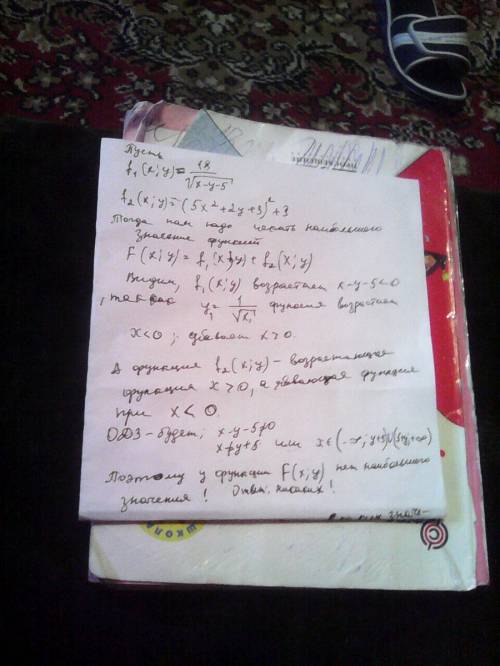 Пусть
f₁(x;y)= 18/√(x-y-5)
f₂(x;y)=-(5x²+2y+3)²+3
Тогда нам надо искать наибольшего
значение функций
F(x;y)=f₁(x;y)+f₂(x;y)
Видим, f₁(x;y) возрастает x-y-5<0
, так как y₁= 1/√x₁ функция возрастает
x<0; убывает x>0.
А функция f₂(x;y)-возрастающая
функция x>0, а убывающая функция
при x<0.
ОДЗ-будет; x-y-5≠0
x≠y+5 или x∈(-∞;y+5)∪(5+y;+∞)
Поэтому у функции F(x;y) нет наибольшего
значения! Ответ: никаких!
ШКОЛА